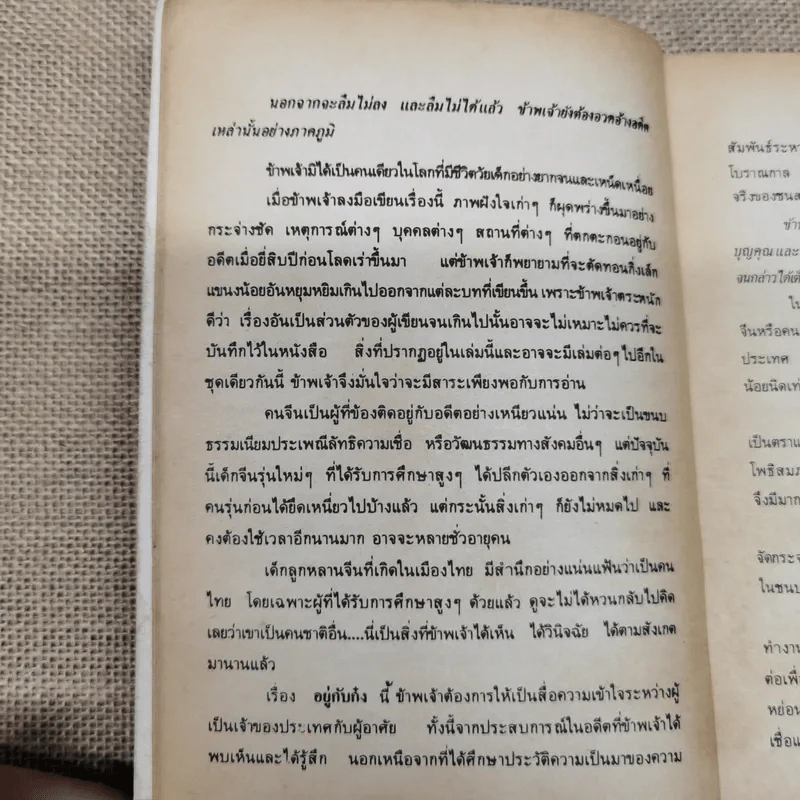 นอกจากจะลืมไม่ลง และลืมไม่ได้แล้ว ข้าพเจ้ายังต้องอวดอ้างอดีต
เหล่านั้นอย่างภาคภูมิ
ข้าพเจ้ามิได้เป็นคนเดียวในโลกที่มีชีวิตวัยเด็กอย่างยากจนและเหน็ดเหนื่อย
เมื่อข้าพเจ้าลงมือเขียนเรื่องนี้ ภาพฝังใจเก่าๆ ก็ผุดพร่างขึ้นมาอย่าง
กระจ่างชัด เหตุการณ์ต่างๆ บุคคลต่างๆ สถานที่ต่างๆ ที่ตกตะกอนอยู่กับ
อดีตเมื่อยี่สิบปีก่อนโลดเร่าขึ้นมา แต่ข้าพเจ้าก็พยายามที่จะตัดทอนกิ่งเล็ก
แขนงน้อยอันหยุมหยิมเกินไปออกจากแต่ละบทที่เขียนขึ้น เพราะข้าพเจ้าตระหนัก
ดีว่า เรื่องอันเป็นส่วนตัวของผู้เขียนจนเกินไปนั้นอาจจะไม่เหมาะไม่ควรที่จะ
บันทึกไว้ในหนังสือ สิ่งที่ปรากฏอยู่ในเล่มนี้และอาจจะมีเล่มต่อๆ ไปอีกใน
ชุดเดียวกันนี้ ข้าพเจ้าจึงมั่นใจว่าจะมีสาระเพียงพอกับการอ่าน
คนจีนเป็นผู้ที่ข้องติดอยู่กับอดีตอย่างเหนียวแน่น ไม่ว่าจะเป็นขนบ
ธรรมเนียมประเพณีลัทธิความเชื่อ หรือวัฒนธรรมทางสังคมอื่นๆ แต่ปัจจุบัน
นี้เด็กจีนรุ่นใหม่ๆ ที่ได้รับการศึกษาสูงๆ ได้ปลีกตัวเองออกจากสิ่งเก่าๆ ที่
คนรุ่นก่อนได้ยึดเหนี่ยวไปบ้างแล้ว แต่กระนั้นสิ่งเก่าๆ ก็ยังไม่หมดไป และ
คงต้องใช้เวลาอีกนานมาก อาจจะหลายชั่วอายุคน
เด็กลูกหลานจีนที่เกิดในเมืองไทย มีสำนึกอย่างแน่นแฟ้นว่าเป็นคน
ไทย โดยเฉพาะผู้ที่ได้รับการศึกษาสูงๆ ด้วยแล้ว ดูจะไม่ได้หวนกลับไปคิด
เลยว่าเขาเป็นคนชาติอื่น....นี่เป็นสิ่งที่ข้าพเจ้าได้เห็น ได้วินิจฉัย ได้ตามสังเกต
มานานแล้ว
เรื่อง อยู่กับก๋ง นี้ ข้าพเจ้าต้องการให้เป็นสื่อความเข้าใจระหว่างผู้
เป็นเจ้าของประเทศกับผู้อาศัย ทั้งนี้จากประสบการณ์ในอดีตที่ข้าพเจ้าได้
พบเห็นและได้รู้สึก นอกเหนือจากที่ได้ศึกษาประวัติความเป็นมาของความ
สัมพันธ์ระหว
โบราณกาล
จริงของชน
ข้า
บุญคุณ และ
จนกล่าวได้เต็
ใน
จีนหรือคน
ประเทศ
น้อยนิดเท่
เป็นตราแ
โพธิสมภ
จึงมีมาก
จัดกระจ
ในชนบ
ทำงาน
ต่อเพื่
หย่อน
เชื่อแ